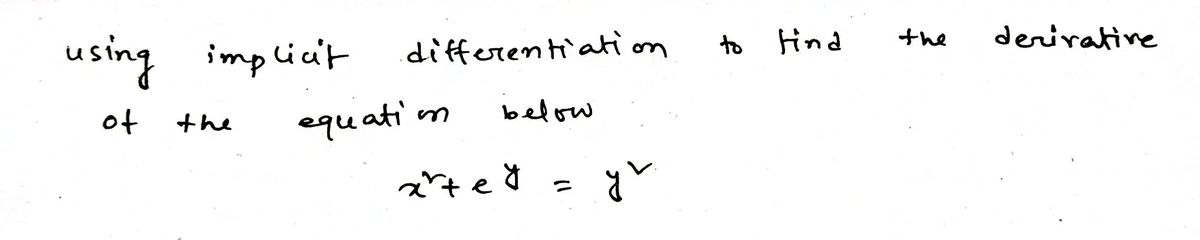 using implicit differentiation to find the derivative
of the equation below
x² + e^y = y²